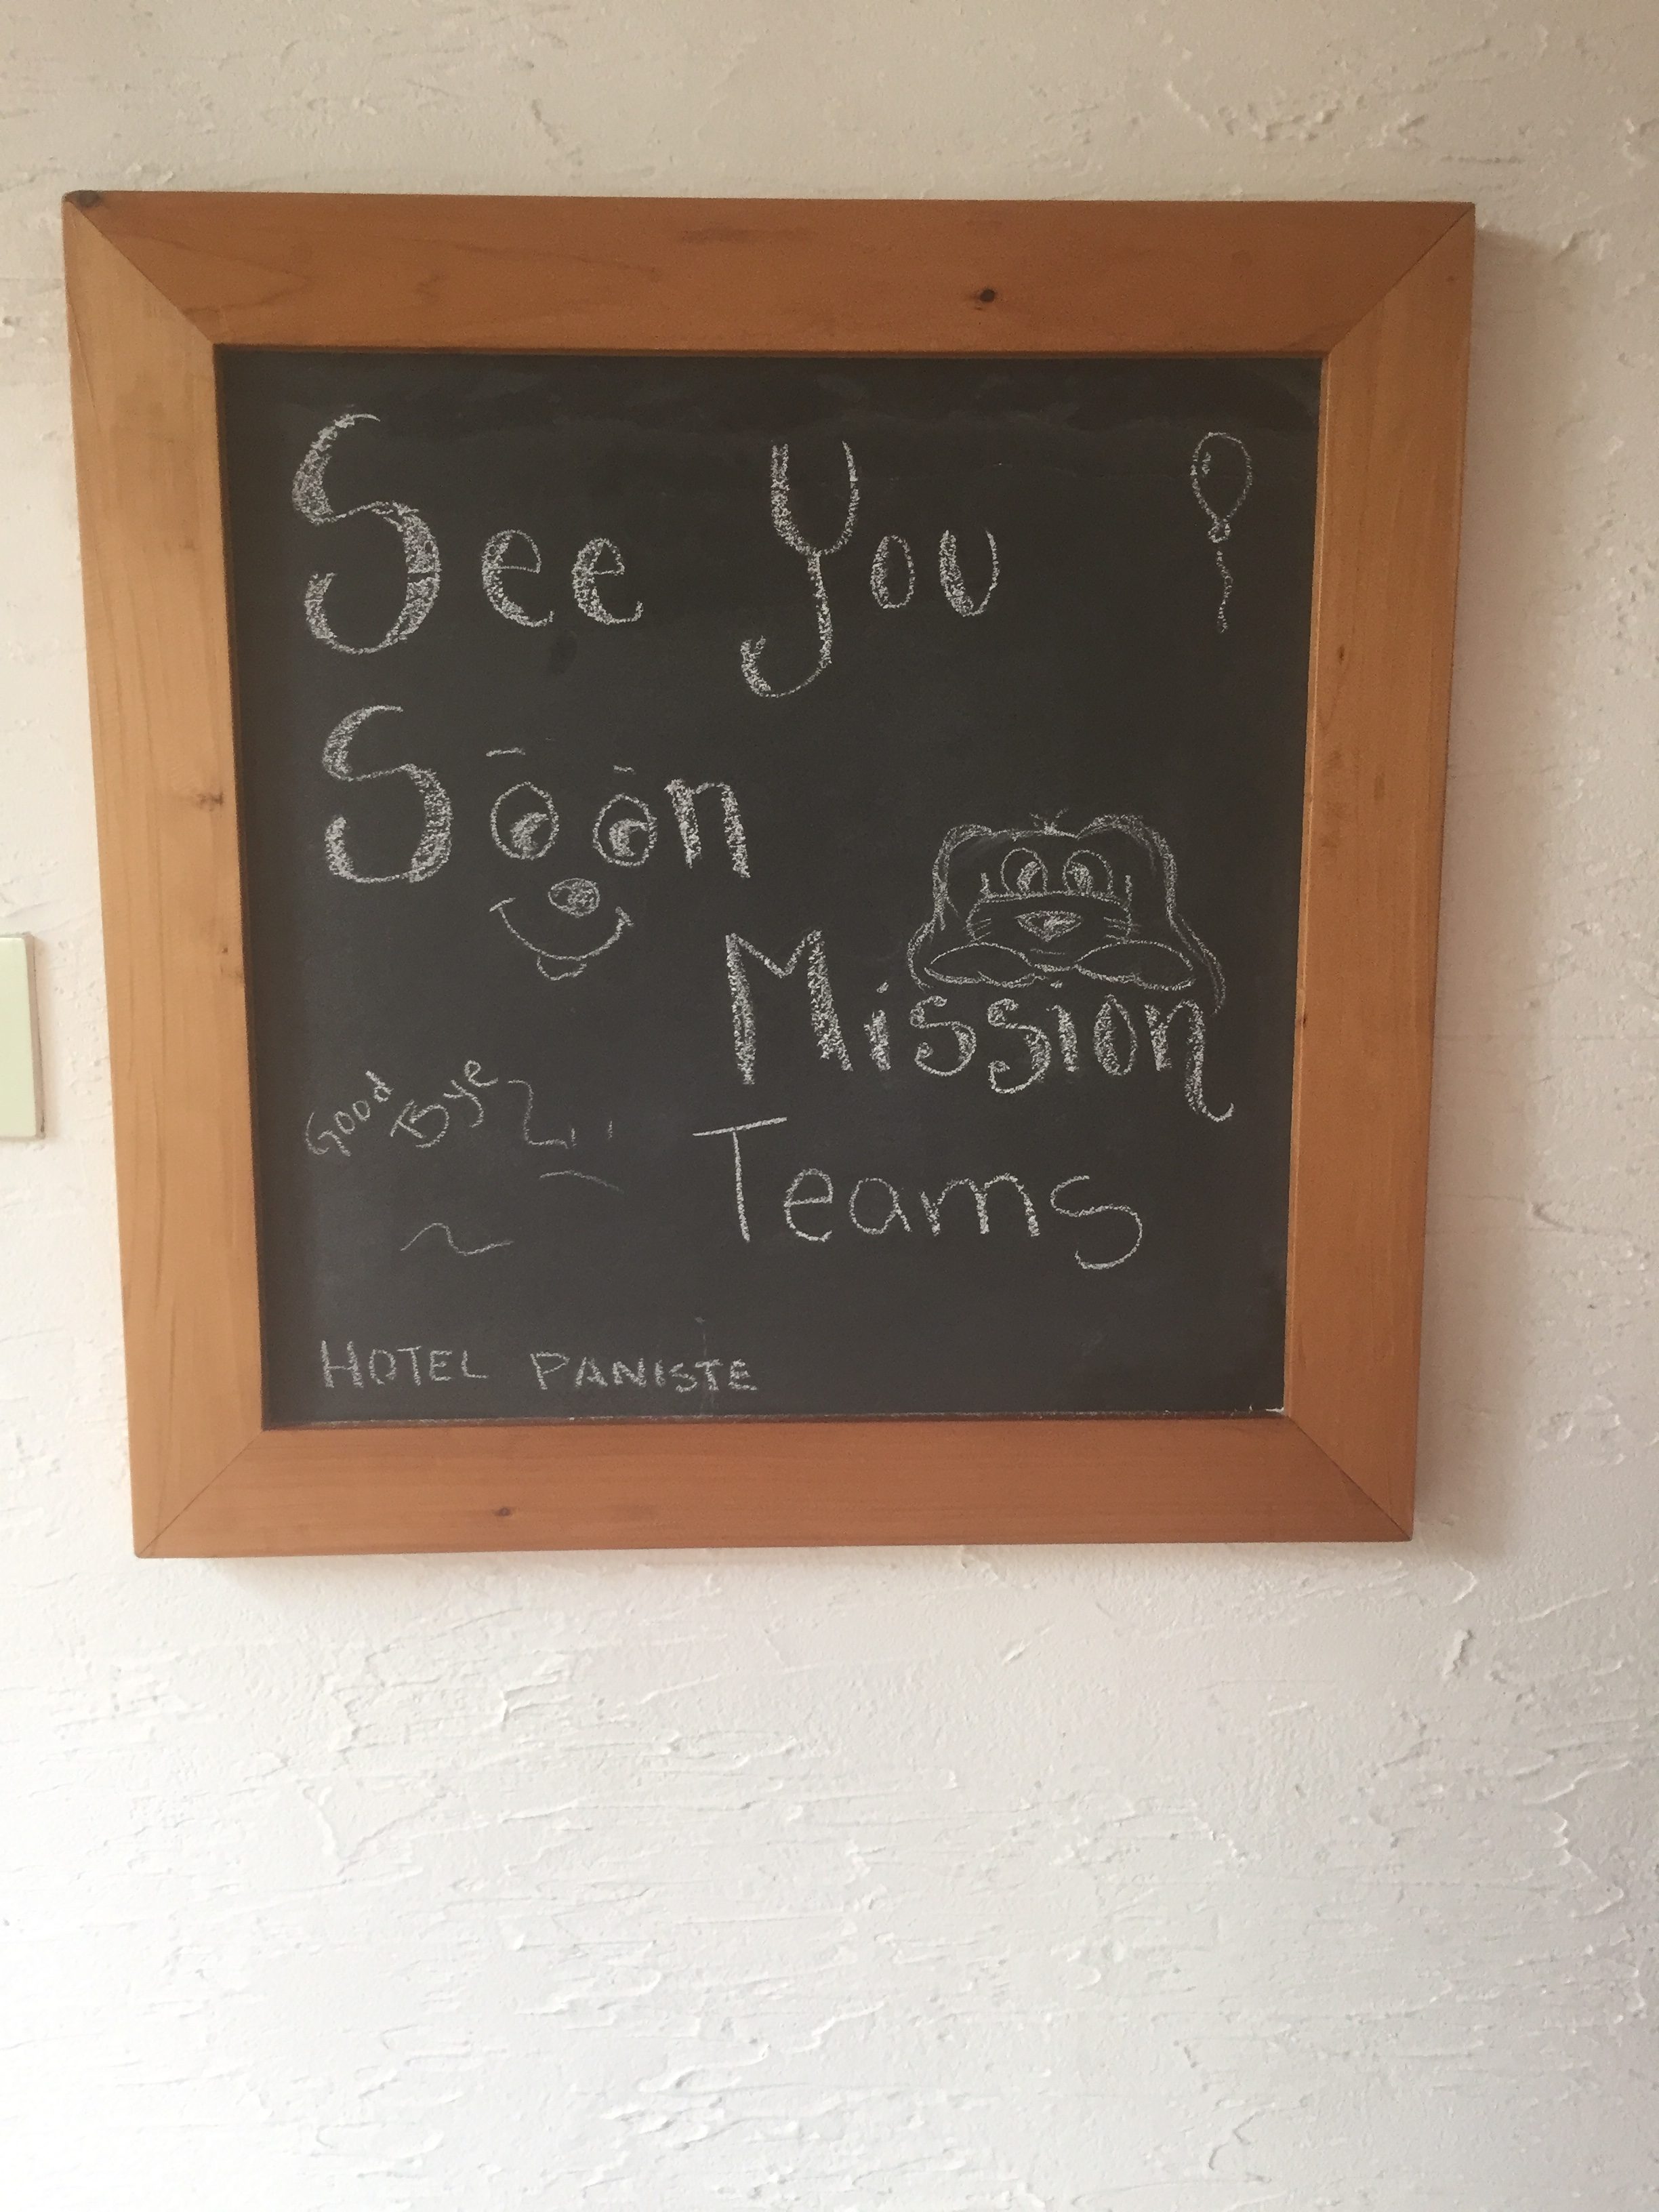 See You
Soon
Mission
Good Bye
Teams
HOTEL PANISTE